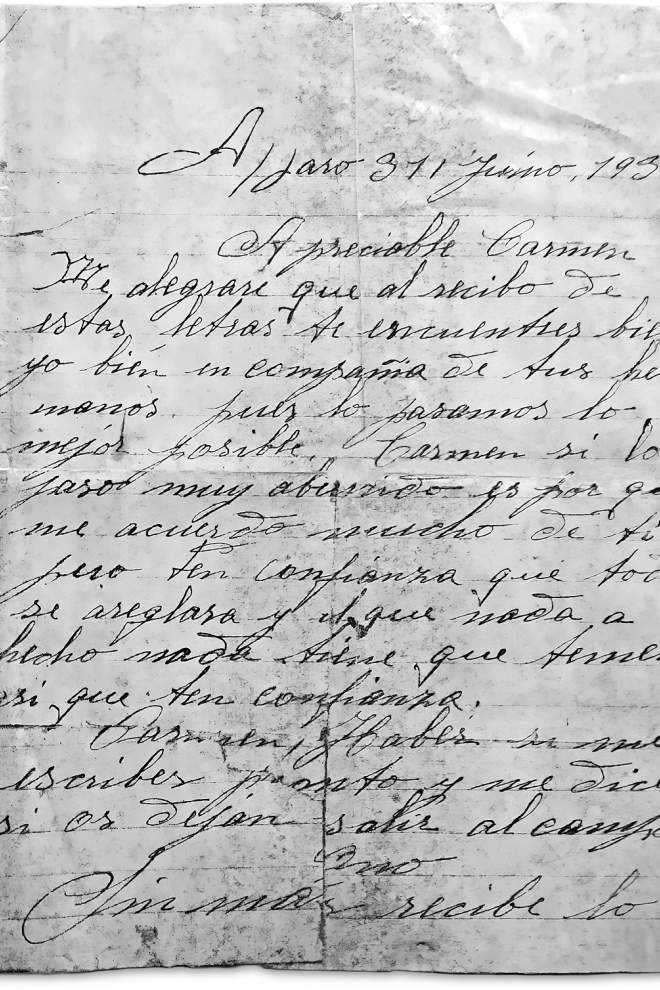 A/faro 31 Junio, 193
Apreciable Carmen
Me alegrare que al recibo de
estas letras te encuentres bie
yo bién en compañia de tus he
manos. pues lo pasamos lo
mejor posible. Carmen si lo
paso muy aburrido es por q
me acuerdo mucho de ti
pero ten confianza que tod
se areglara y el que nada a
hecho nada tiene que teme
asi que ten confianza.
Carmen, Haber si me
escribes pronto y me dice
si os dejan salir al camp
o no
Sin más recibe lo